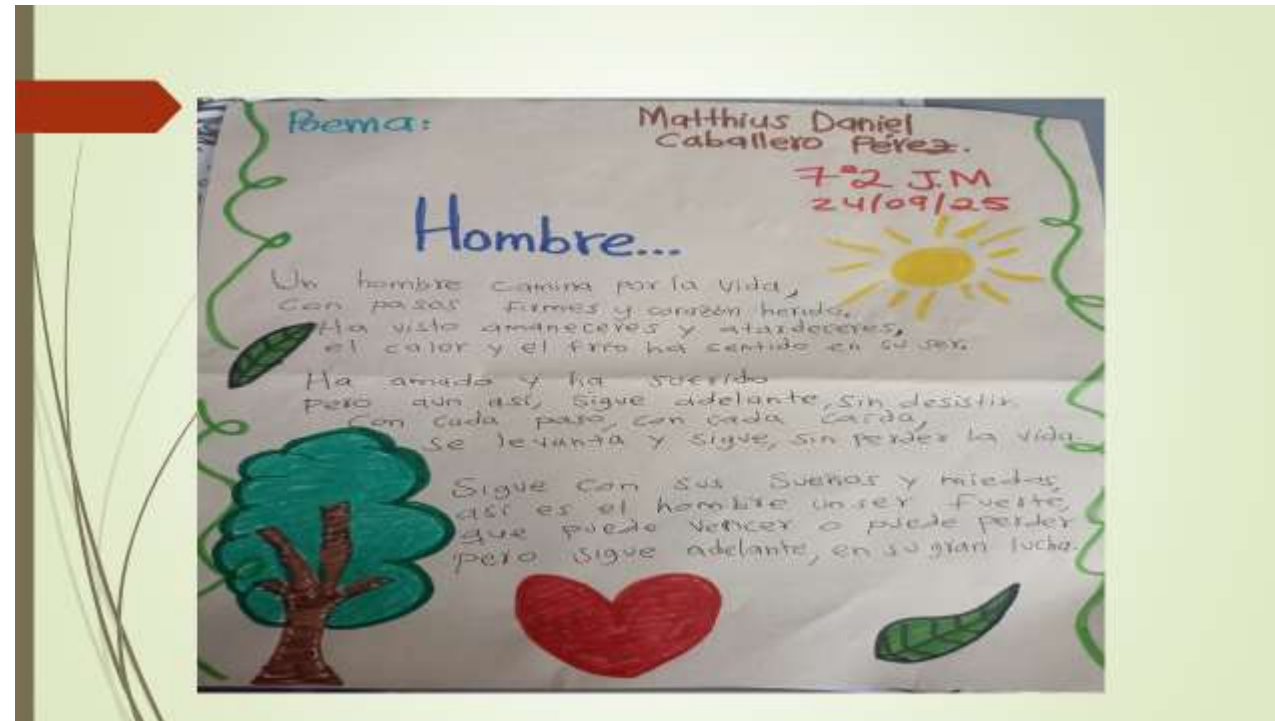 Poema:
Matthius Daniel
Caballero Pérez.
7°2 J.M
24/09/25
Hombre...
Un hombre camina por la vida,
Con pasos firmes y corazón herido.
Ha visto amaneceres y atardeceres,
el calor y el frío ha sentido en su ser.
Ha amado y ha sufrido
Pero aun así, sigue adelante, sin desistir.
Con cada paso, con cada caída,
se levanta y sigue, sin perder la vida
Sigue con sus sueños y miedos,
así es el hombre un ser fuerte,
que puede vencer o puede perder
pero sigue adelante, en su gran lucha.